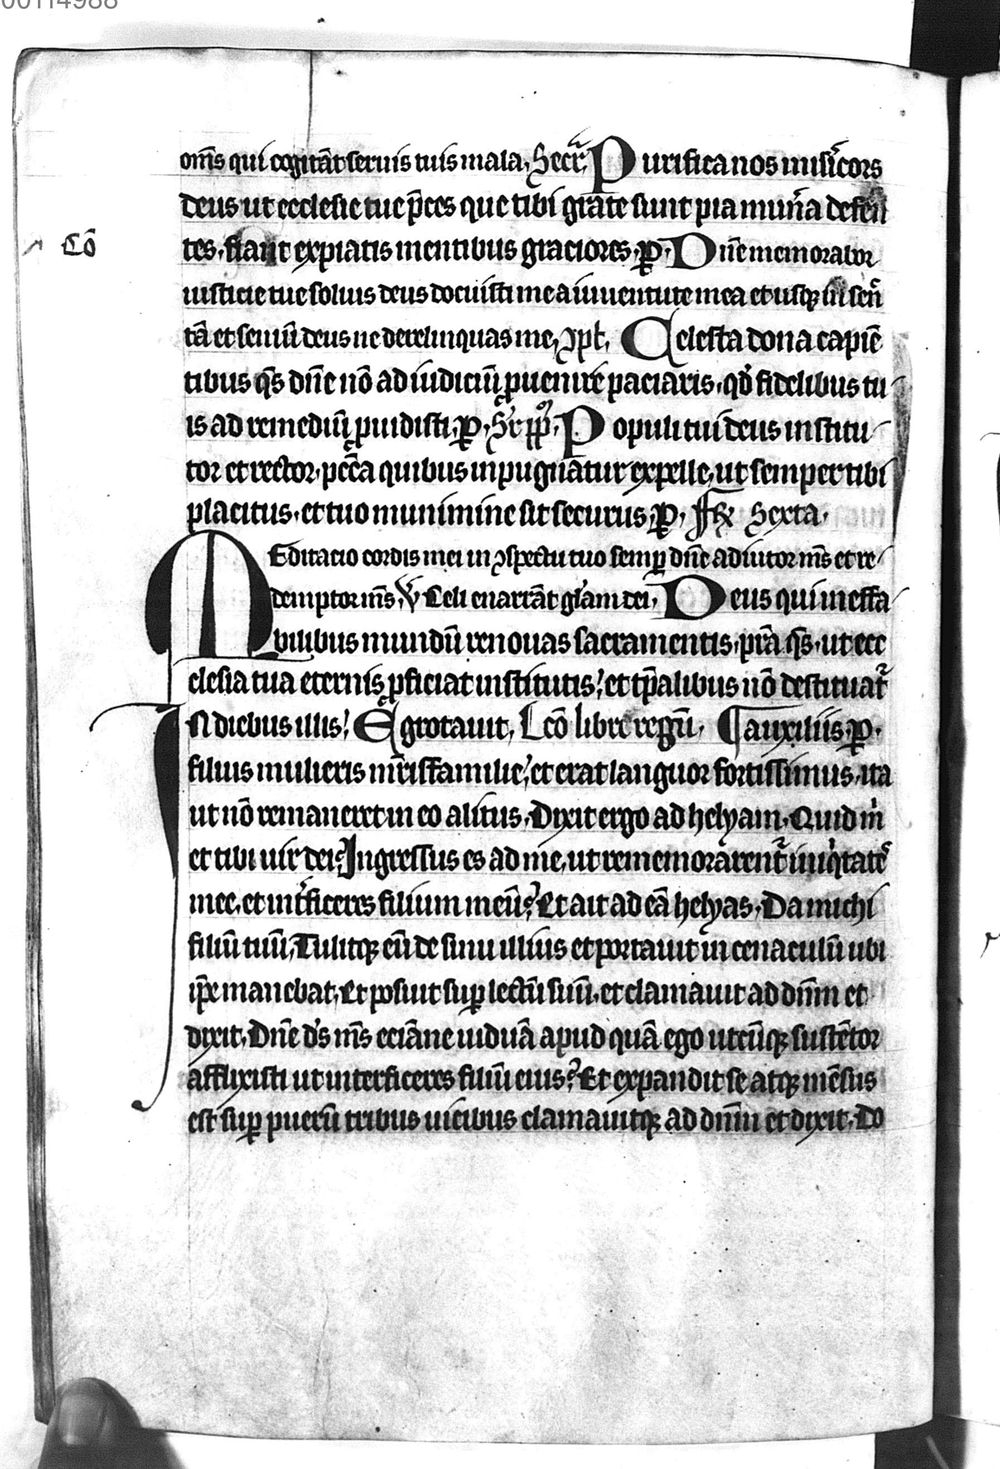 00114988
om̅s qui cogitāt seruis tuis mala. Secr̄. Purifica nos mis̄icors
deus ut ecclesie tue p̄ces que tibi grate sunt pia mun̄a defen̄
tes. fiant expiatis mentibus graciores. p. Dn̄e memorabor
Cō
iusticie tue solius deus docuisti me a iuuentute mea et usqꝫ in sen̄
tā et seniū deus ne derelinquas me. xp̄l. Celestia dona capiē
tibus q̄s dn̄e nō ad iudiciū ꝓuenire paciaris. qd̄ fidelibus tu
is ad remediū ꝓuidisti. p. Sr̄ pp̄l. Populi tui deus institu
tor et rector. pcc̄a quibus inpugnatur expelle. ut semper tibi
placitus. et tuo munimine sit securus. p. Fr̄ Sexta.
MEditacio cordis mei in ꝯspectu tuo semꝑ dn̄e adiutor m̄s et re
demptor m̄s. V Celi enarrāt gl̄am dei. Deus qui ineffa
bilibus mundū renouas sacramentis. pr̄a q̄s. ut ecc
clesia tua eternis ꝓficiat institutis. et tp̄alibus nō destituat̄
IN diebus illis. Egrotauit. Lc̄o libri regū. ¶ auxiliis. p.
filius mulieris mr̄isfamilie. et erat languor fortissimus. ita
ut nō remaneret in eo alitus. Dixit ergo ad helyam. Quid m̄
et tibi uir dei. Ingressus es ad me. ut rememorarent̄ iniq̄tatē
mee. et int̄ficeres filium meū? Et ait ad eā helyas. Da michi
filiū tuū. Tulitqꝫ eū de sinu illius et portauit in cenaculū ubi
ip̄e manebat. Et posuit suꝑ lectū suū. et clamauit ad dn̄m et
dixit. Dn̄e d̄s m̄s eciāne uiduā apud quā ego utcūqꝫ sustētor
afflixisti ut interficeres filiū eius? Et expandit se atqꝫ mēsus
est suꝑ puerū tribus uicibus clamauitqꝫ ad dn̄m et dixit. Do